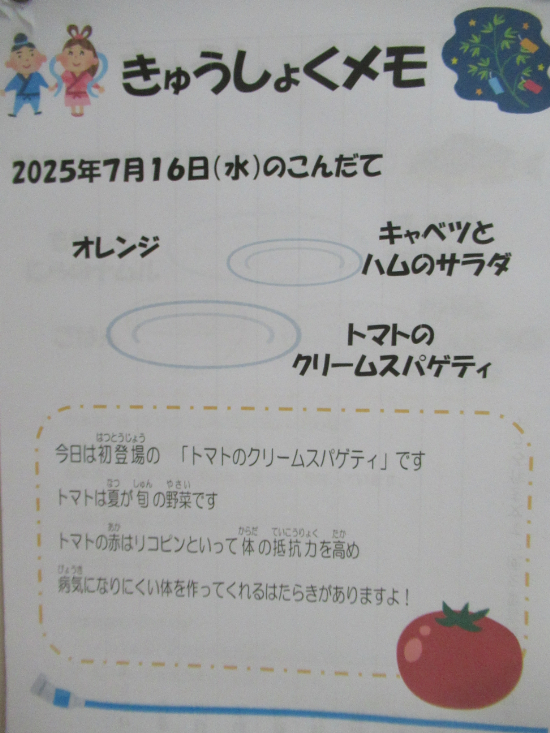 きゅうしょくメモ
2025年7月16日(水)のこんだて
オレンジ
キャベツと
ハムのサラダ
トマトの
クリームスパゲティ
はつとうじょう
今日は初登場の 「トマトのクリームスパゲティ」です
なつ しゅん やさい
トマトは夏が旬の野菜です
あか からだ ていこうりょく たか
トマトの赤はリコピンといって体の抵抗力を高め
びょうき
病気になりにくい体を作ってくれるはたらきがありますよ!